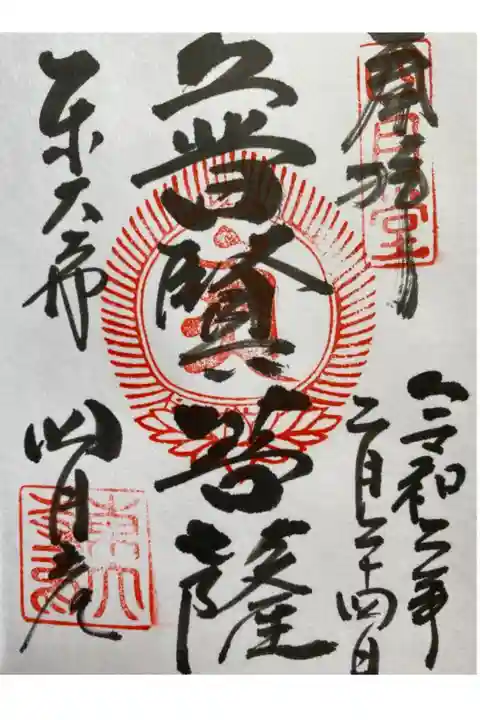 奉拝
令和二年
二月二十四日
普賢菩薩
東大寺
四月堂